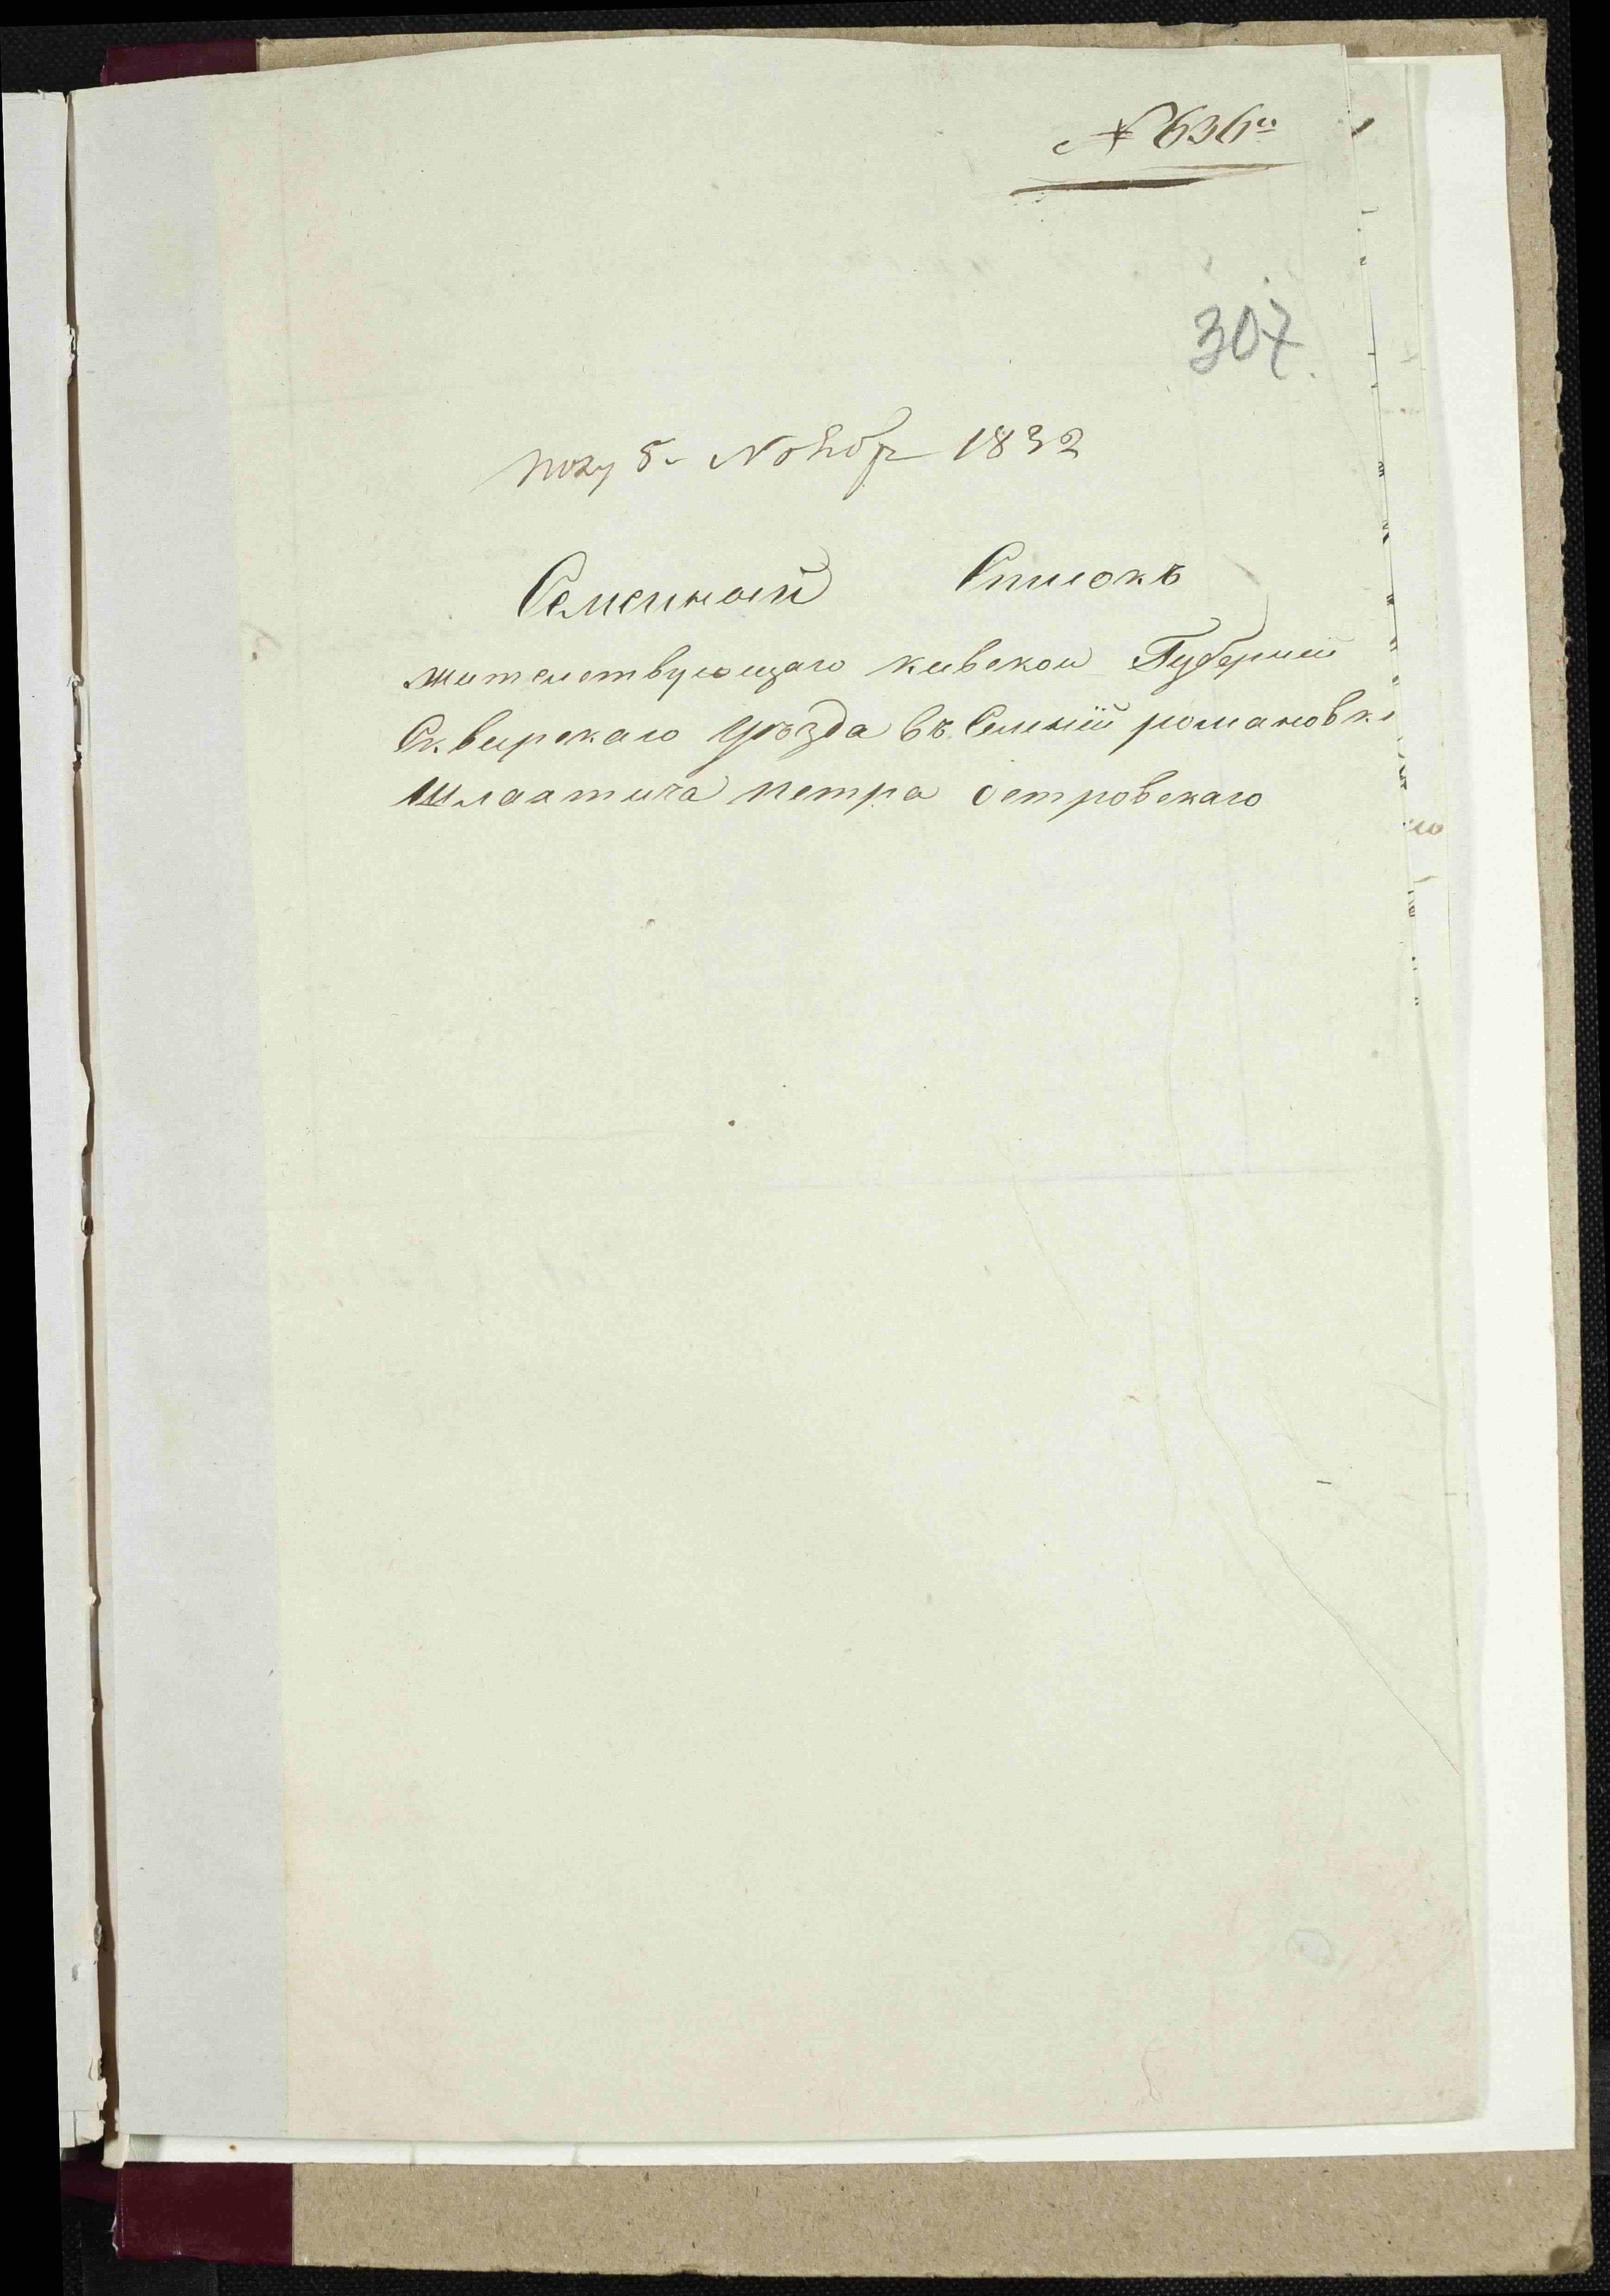 № 636й
307.
полу 5. Ноября 1832
Семейный Списокъ
жительствующаго кивской Губерний
Сквирскаго Уѣзда въ Селений романовк
Шляхтича петра островскаго